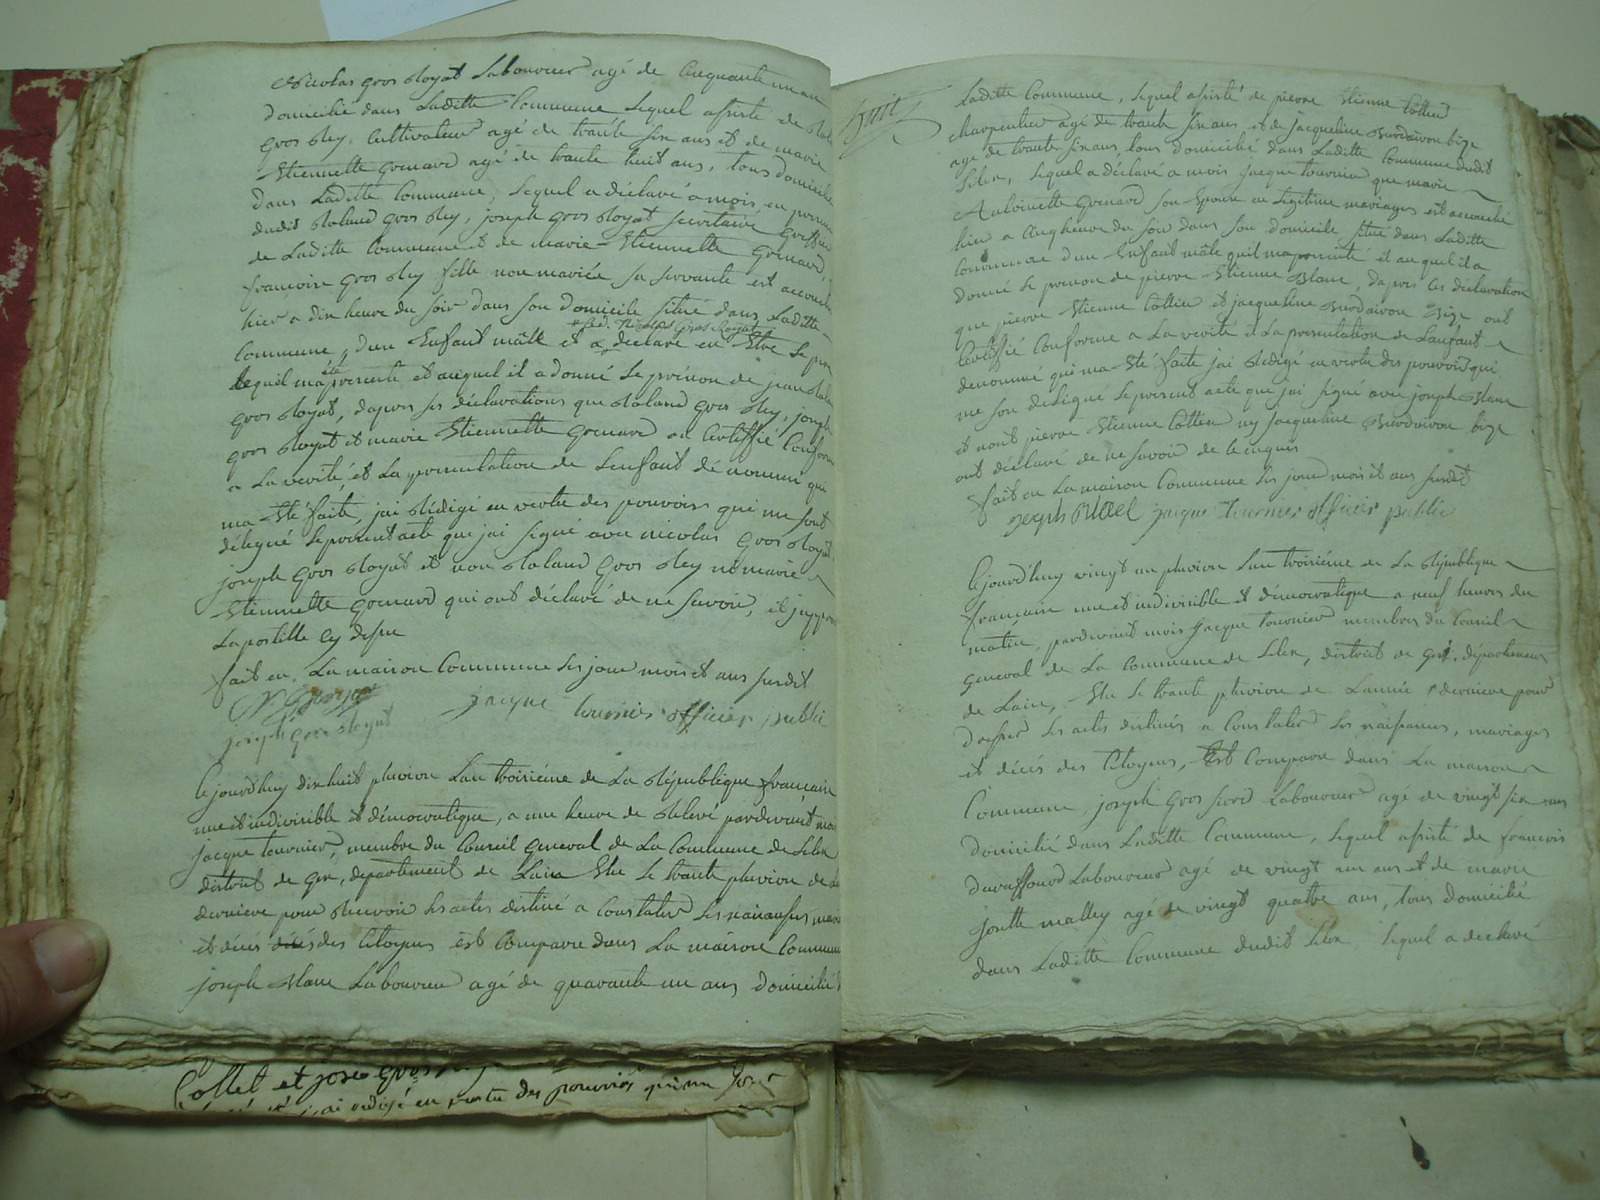 Nicolas gros Royat Laboureur agé de Cinquante un an
domicilié dans Laditte Commune Lequel assisté de Rolan
gros Rey, Cultivateur agé de trante six ans et de marie
Etiennette grenard agé de trante huit ans, tous domicilie
dans Laditte Commune, Lequel a déclaré a mois en presen
dudit Roland gros Rey, joseph gros Royat secretaire greffier
de Laditte Commune et de marie Etiennette Grenard,
francoise gros Rey fille non mariée sa servante est accouch
hier a dix heure du soir dans son domicile situé dans Laditte
+ led. Nicolas Gros Royat
Commune, dun Enfant mâle et a declaré en Etre Le pere
Lequil ma été presenté et auquel il a donné Le prénon de jean
gros Royat, dapres ses déclarations que Roland gros Rey, joseph
gros Royat et marie Etiennette grenard on Certiffié Conforme
a La verité, et La presentation de Lenfant dénommé que
ma Eté faite, jai Rédigé en vertu des pouvoirs qui me sont
délégué Le present acte que jai signé avec nicolas gros Royat
joseph gros Royat et non Roland gros Rey ni marie
Etiennette Grenard qui ont déclaré de ne savoir, et japprou
La postille cy dessu
fait en La maison Commune Les jour mois et ans susdit
joseph gros Royat jacque tournier officier public
Lejourd'huy dix huit pluviose Lan troisiéme de La République francaise
une et indivisible et démocratique, a une heure de Relevé pardevant moi
jacque tournier, membre du Conseil general de La Commune de Lelex
district de Gex, département de Lain Elu Le trante pluviose de
derniere pour Recevoir Les actes destiné a Constater Les naisances mari
et décés des Citoyens est Comparu dans La maison Commune
joseph Blanc Laboureur agé de quarante un ans domicilié d
huit
Laditte Commune, Lequel assisté de pierre Etienne Cottier
charpentier agé de trante six ans et de jacqueline Burdairon bize
age de trante six ans, tous domicilié dans Laditte Commune dudit
Lelex, Lequel a déclaré a mois jacque tournier que marie
Antoinette Grenard son Epouse en Legitime mariages est accouché
hier a Cinq heure du soir dans son domicile situé dans Laditte
Commune dun Enfant mâle quil ma presenté et au quel il a
donné Le prenon de pierre Etienne Blanc, dapres Les déclaration
que pierre Etienne Cottier et jacqueline Burdairon Bize ont
Certiffié Conforme a La verité et La presentation de Lanfant
denommé qui ma Eté faite jai Rédigé en vertu des pouvoir qui
me son délégué Le present acte que jai signé avec joseph Blanc
et nont pierre Etienne Cottier ny jacqueline Burdairon bize
ont déclaré de ne savoir de le enquis
fait en La maison Commune Les jour mois et ans susdit
joseph Blanc jacque Tournier officier public
Lejourd'huy vingt un pluviose Lan troisiéme de La République
francaise une et indivisible et démocratique a neuf heures du
matin, pardevant mois jacque tournier membres du Conseil
general de La Commune de Lelex, district de Gex, département
de Lain, Elu Le trante pluviose de Lannée derniere pour
dresser Les actes destinés a Constater Les naissances, mariages
et décés des Citoyens, Est Comparu dans La maison
Commune joseph gros Laboureur agé de vingt six ans
domicilié dans Laditte Commune, Lequel assisté de francois
duraffourd Laboureur agé de vingt un ans et de marie
josette malley agé de vingt quatre ans, tous domicilié
dans Laditte Commune dudit Lelex, Lequel a déclaré
Collet et josep gros
jai redigé en vertu des pouvoirs qui me sont